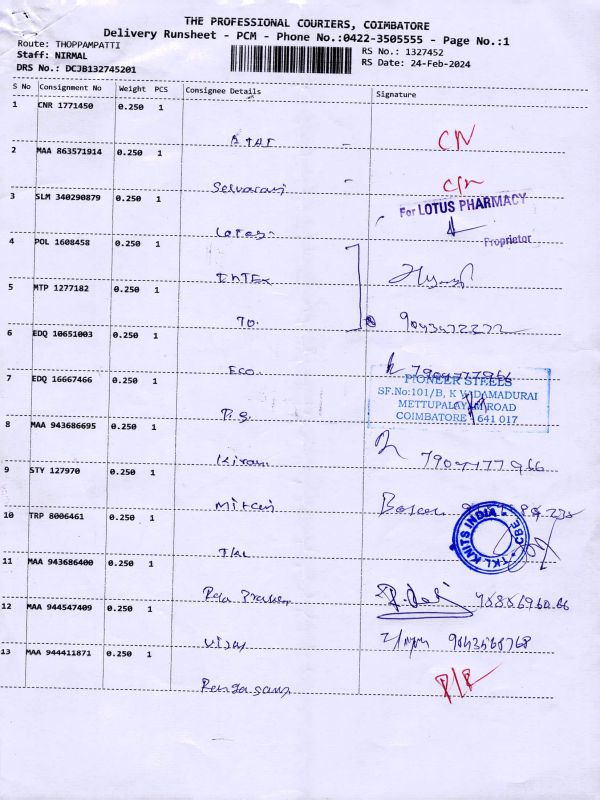 THE PROFESSIONAL COURIERS, COIMBATORE
Delivery Runsheet - PCM - Phone No.:0422-3505555 - Page No.:1
Route: THOPPAMPATTI
RS No.: 1327452
Staff: NIRMAL
RS Date: 24-Feb-2024
DRS No.: DCJB132745201
S No Consignment No Weight PCS Consignee Details Signature
1 CNR 1771450 0.250 1
CN
2 MAA 863571914 0.250 1
Selvaraj
3 SLM 340290879 0.250 1
For LOTUS PHARMACY
Lotus
Proprietor
4 POL 1608458 0.250 1
5 MTP 1277182 0.250 1
TO.
6 EDQ 10651003 0.250 1
Eco. 7904777966
7 EDQ 16667466 0.250 1
PIONEER STEELS
SF.No:101/B, K VADAMADURAI
METTUPALAYAM ROAD
COIMBATORE 641 017
P.S.
8 MAA 943686695 0.250 1
Kiran 7904777966
9 STY 127970 0.250 1
10 TRP 8006461 0.250 1
TKL
TKL KNITS INDIA CBE
11 MAA 943686400 0.250 1
12 MAA 944547409 0.250 1
Vijay
13 MAA 944411871 0.250 1